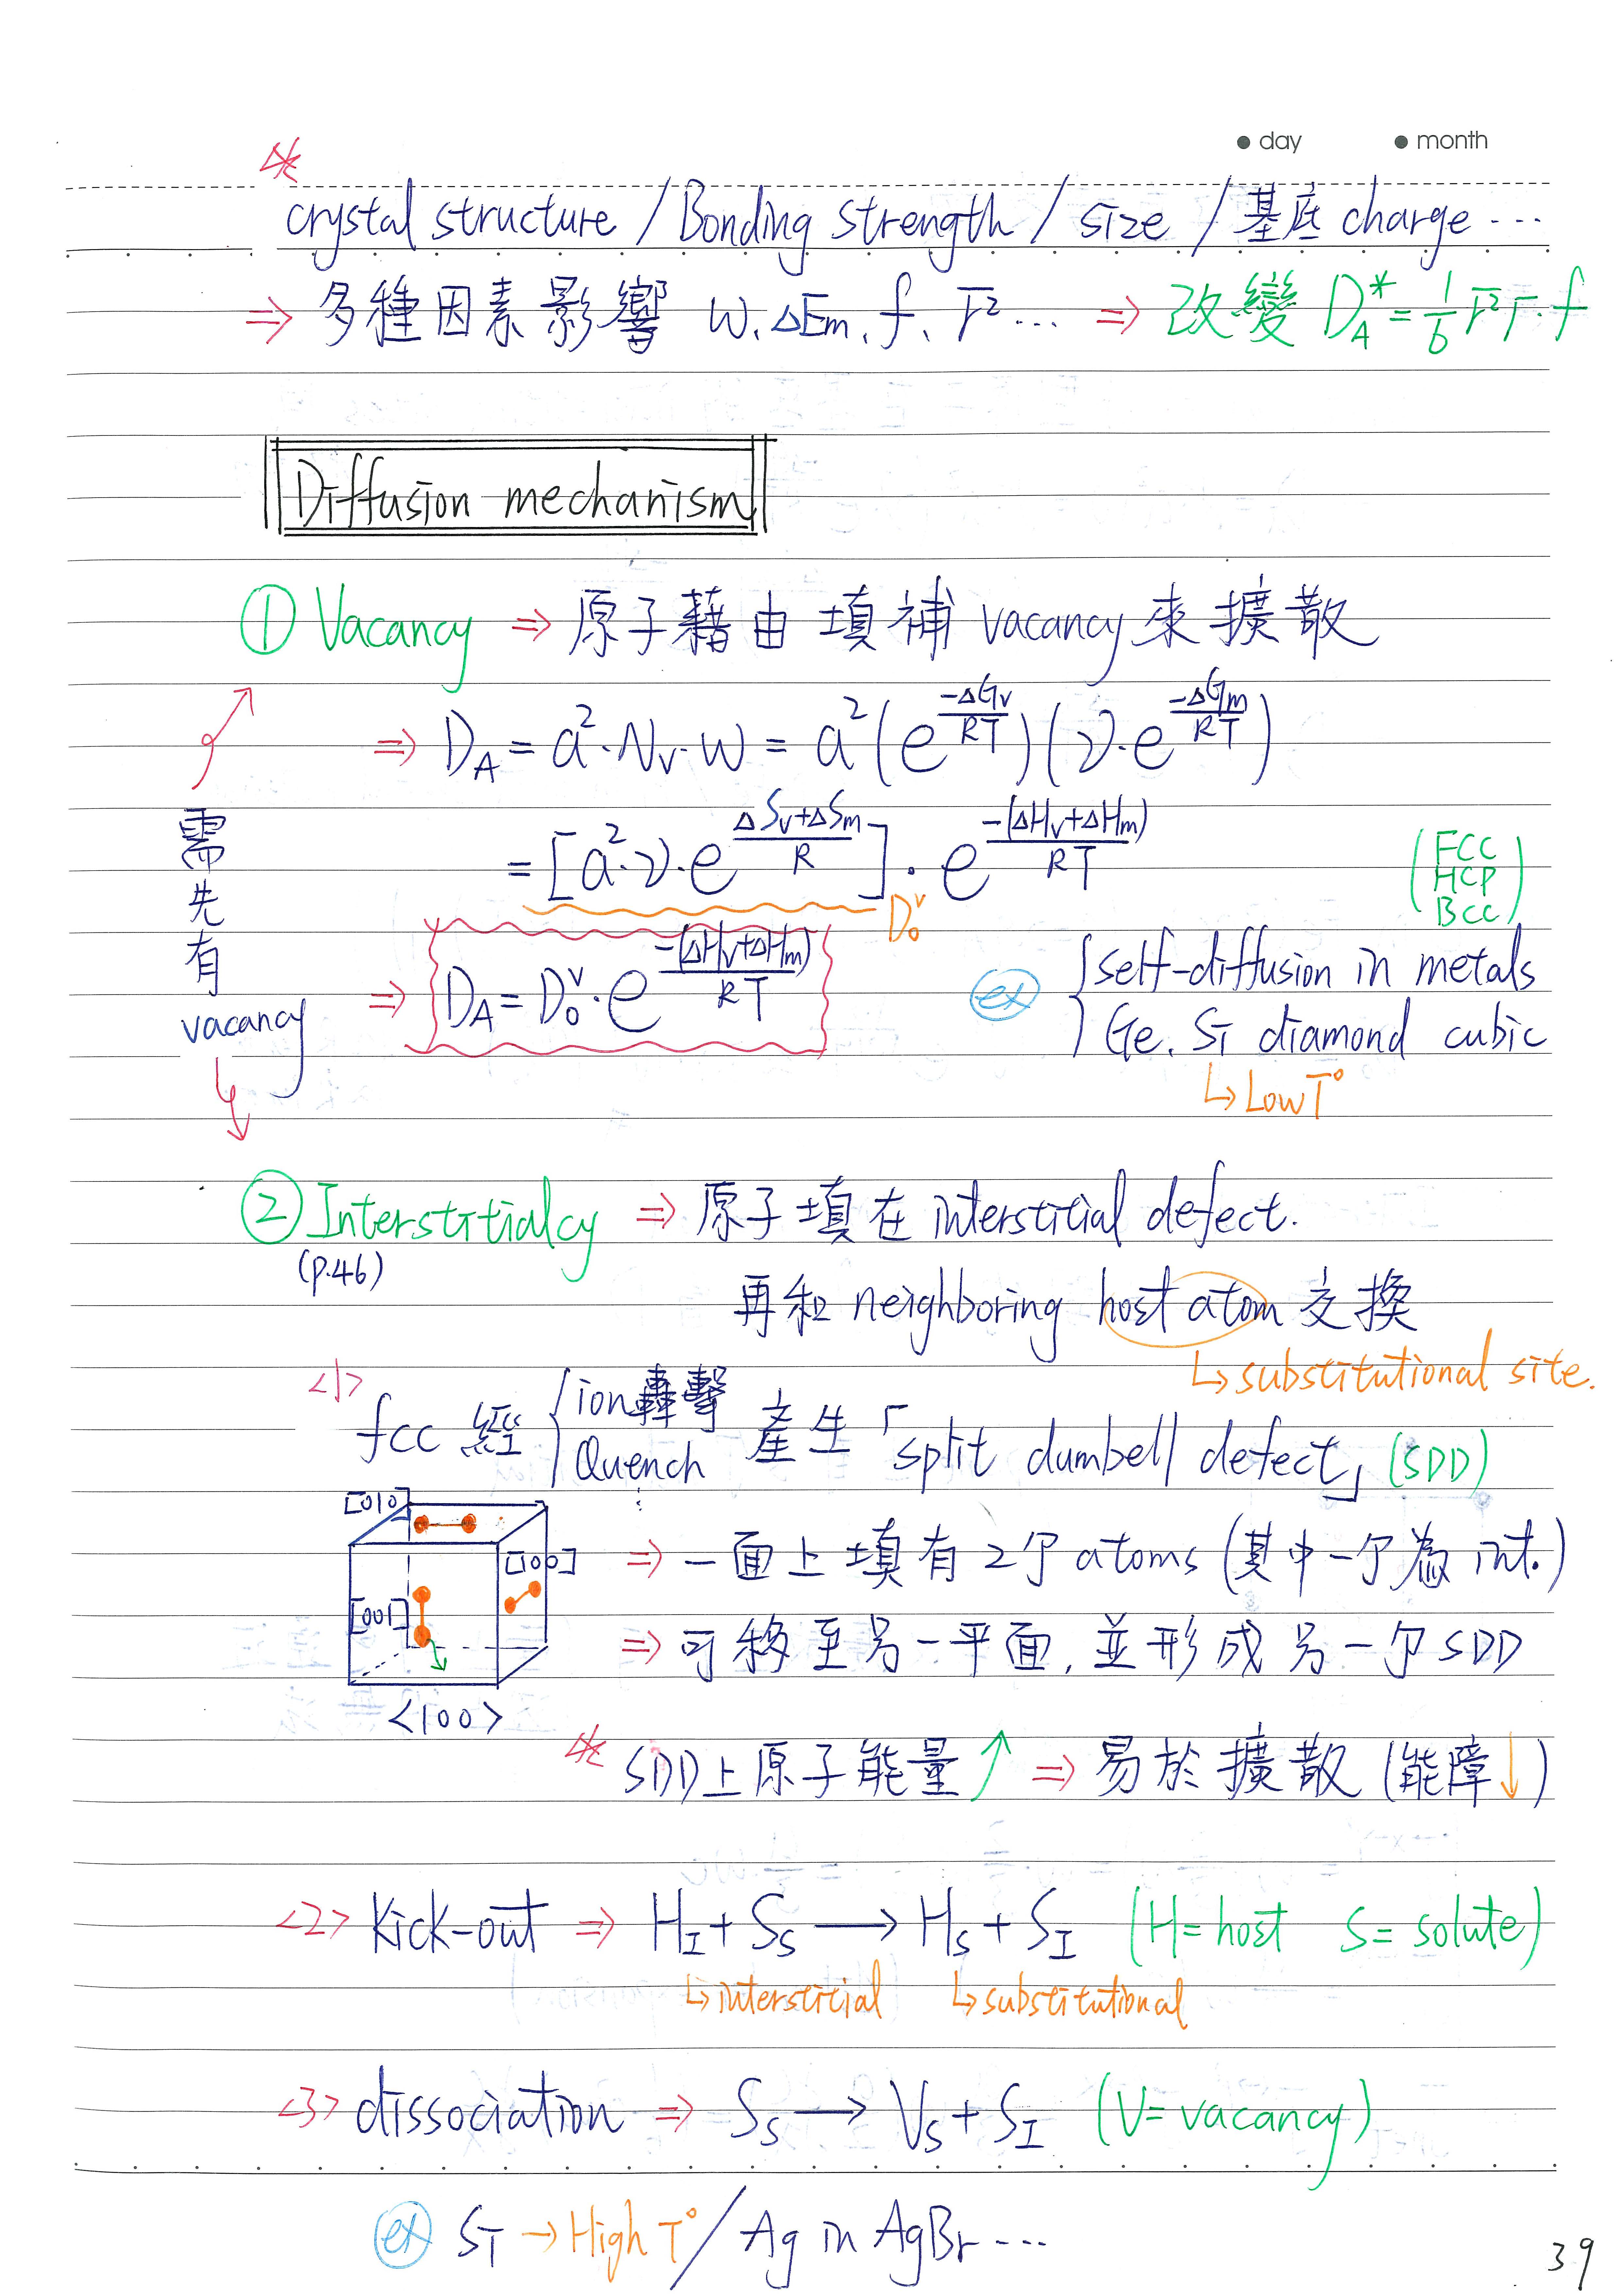 day month
* crystal structure / Bonding strength / size / 基底 charge …
⇒ 多種因素影響 w、ΔEm、f、r̄² … ⇒ 改變 D_A* = 1/6 r̄² Γ · f
Diffusion mechanism
① Vacancy ⇒ 原子藉由填補 vacancy 來擴散
⇒ D_A = a² · N_V · w = a² (e^(-ΔG_V/RT)) (ν · e^(-ΔG_m/RT))
= [a² · ν · e^((ΔS_V+ΔS_m)/R)] · e^(-(ΔH_V+ΔH_m)/RT)
D_0^V
(FCC HCP BCC)
⇒ D_A = D_0^V · e^(-(ΔH_V+ΔH_m)/RT)
ex { self-diffusion in metals
Ge, Si diamond cubic
↳ Low T°
需先有 vacancy
② Interstitialcy ⇒ 原子填在 interstitial defect.
(p.46)
再和 neighboring host atom 交換
↳ substitutional site.
<1> fcc 經 { ion轟擊 Quench 產生「split dumbell defect」(SDD)
[010]
[100]
[001]
<100>
⇒ 一面上填有 2个 atoms (其中一个為 int.)
⇒ 可移至另一平面, 並形成另一个 SDD
* SDD上原子能量↑ ⇒ 易於擴散 (能障↓)
<2> kick-out ⇒ H_I + S_S → H_S + S_I (H = host S = solute)
↳ interstitial ↳ substitutional
<3> dissociation ⇒ S_S → V_S + S_I (V = vacancy)
ex Si → High T° / Ag in AgBr …
39